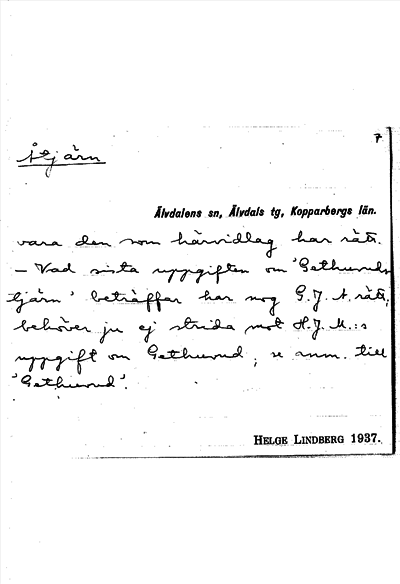 7
Åtjärn
Älvdalens sn, Älvdals tg, Kopparbergs län.
vara den som härvidlag har rätt.
– Vad sista uppgiften om 'Gethuvuds
tjärn' beträffar har nog G.J. A. rätt,
behöver ju ej strida mot H.J. M.:s
uppgift om Gethuvud, se anm. till
'Gethuvud'.
HELGE LINDBERG 1937.